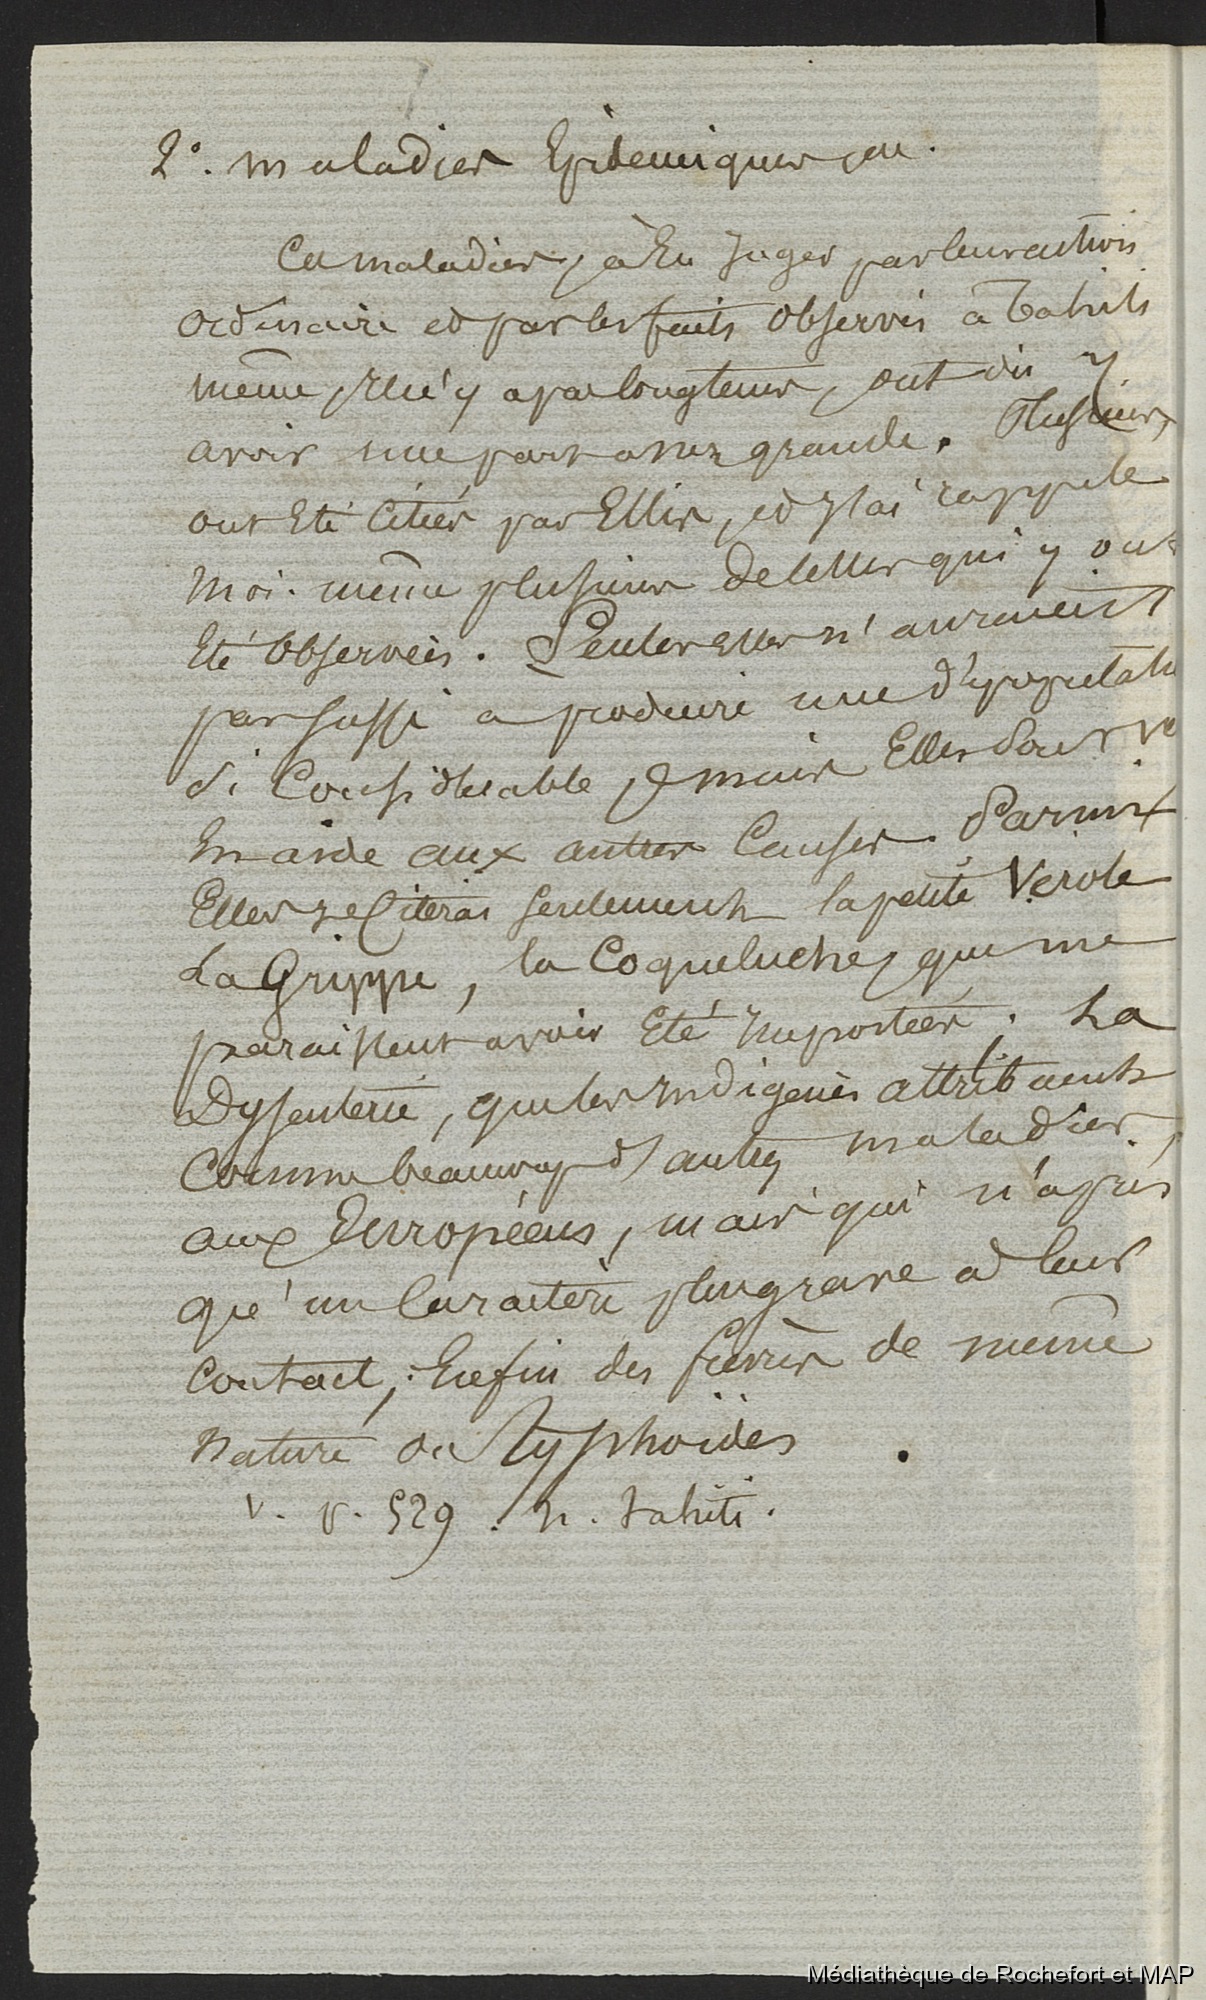 2°. maladies Epidemiques, ou.
Ces maladies, à En Juger par leur action
ordinaire et par les faits observés à Tahiti
même, il n'y a pas longtems, ont dû y
avoir une part assez grande. Plusieurs
ont Eté Citées par Ellis, et J'ai rappelé
moi-même plusieurs de celles qui y ont
Eté Observées. Seules Elles n'auraient
pas suffi a produire une dépopulation
si Considérable, mais Elles sont ve
En aide aux autres Causes. Parmi
Elles Je Citerai seulement la petite Verole
La Grippe, la Coqueluche, que me
paraissent avoir Eté Importées ; La
Dyssenterie, que les Indigènes attribuent
Comme beaucoup d'autres maladies,
aux Européens, mais qui n'a pris
qu'un Caractère plus grave à leur
Contact ; Enfin des fièvres de même
nature dites typhoïdes .
V. p. 529 . n. tahiti.
Médiathèque de Rochefort et MAP